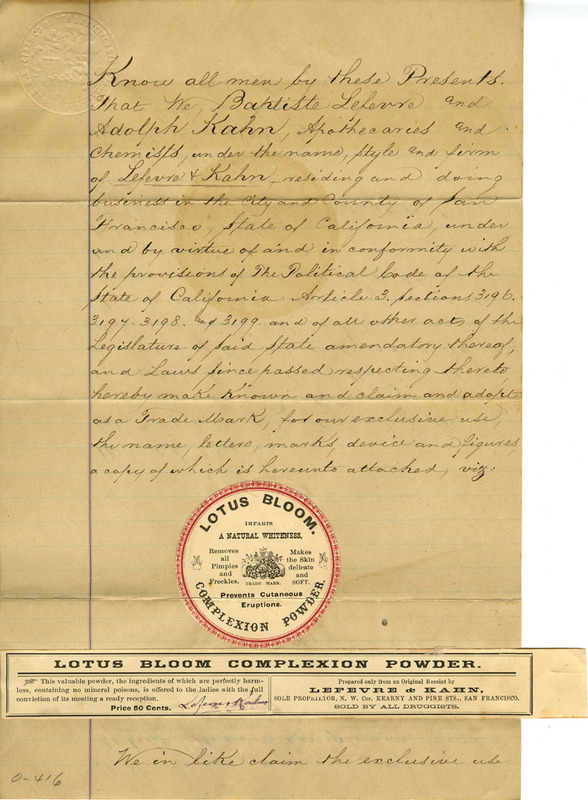 Know all men by these Presents.
That We, Baptiste Lefevre and
Adolph Kahn, Apothecaries and
Chemists, under the name, style and firm
of Lefevre & Kahn, residing and doing
business in the City and County of San
Francisco, State of California, under
and by virtue of and in conformity with
the provisions of The Political Code of the
State of California Article 3. sections 3196.
3197. 3198. and 3199. and of all other acts of the
Legislature of said State amendatory thereof,
and Laws since passed respecting thereto
hereby make known and claim and adopt
as a Trade Mark, for our exclusive use,
the name, letters, marks, device and figures,
a copy of which is hereunto attached, viz:
LOTUS BLOOM.
IMPARTS
A NATURAL WHITENESS,
Removes
all
Pimples
and
Freckles.
Makes
the Skin
delicate
and
SOFT.
TRADE MARK.
Prevents Cutaneous
Eruptions.
COMPLEXION POWDER.
LOTUS BLOOM COMPLEXION POWDER.
This valuable powder, the ingredients of which are perfectly harm-
less, containing no mineral poisons, is offered to the ladies with the full
conviction of its meeting a ready reception.
Price 50 Cents. Lefevre & Kahn
Prepared only from an Original Receipt by
LEFEVRE & KAHN,
SOLE PROPRIETOR, N. W. Cor. KEARNY AND PINE STS., SAN FRANCISCO.
SOLD BY ALL DRUGGISTS.
We in like claim the exclusive use
0-416